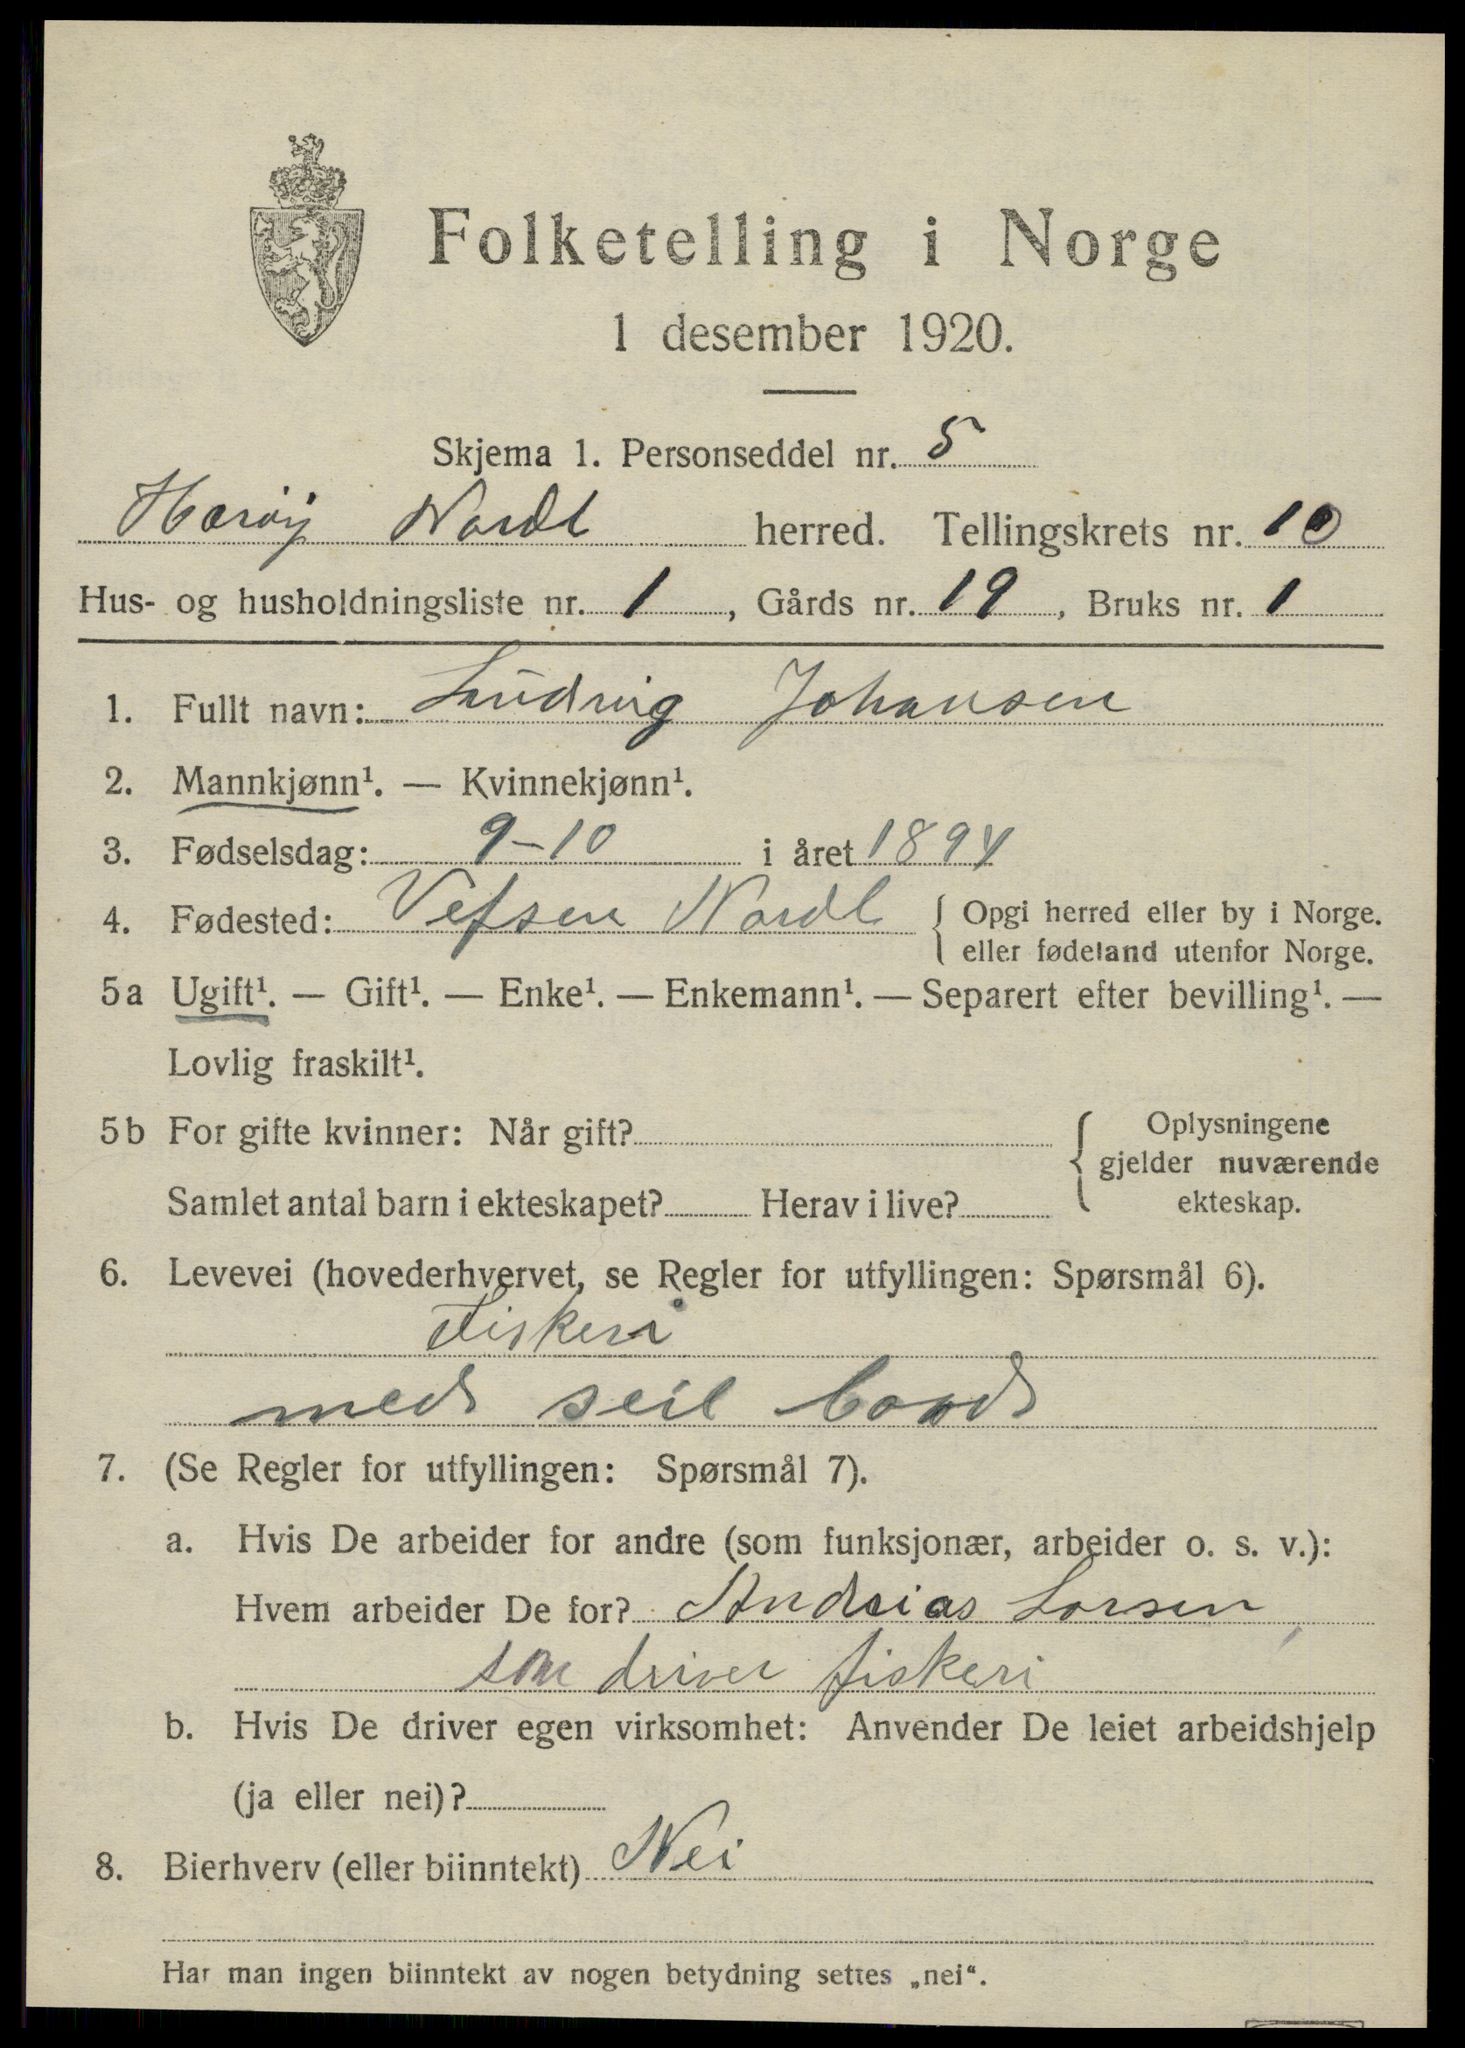 Folketelling i Norge
1 desember 1920.
Skjema 1. Personseddel nr. 5
Herøy Nordl herred. Tellingskrets nr. 10
Hus- og husholdningsliste nr. 1, Gårds nr. 19, Bruks nr. 1
1. Fullt navn: Ludvig Johansen
2. Mannkjønn¹. — Kvinnekjønn¹.
3. Fødselsdag: 9-10 i året 1894
4. Fødested: Vefsen Nordl { Opgi herred eller by i Norge.
eller fødeland utenfor Norge.
5a Ugift¹. — Gift¹. — Enke¹. — Enkemann¹. — Separert efter bevilling¹. —
Lovlig fraskilt¹.
5b For gifte kvinner: Når gift? { Oplysningene
gjelder nuværende
Samlet antal barn i ekteskapet? Herav i live? ekteskap.
6. Levevei (hovederhvervet, se Regler for utfyllingen: Spørsmål 6).
Fiskeri
med seil baad
7. (Se Regler for utfyllingen: Spørsmål 7).
a. Hvis De arbeider for andre (som funksjonær, arbeider o. s. v.):
Hvem arbeider De for? Andreas Larsen,
som driver fiskeri
b. Hvis De driver egen virksomhet: Anvender De leiet arbeidshjelp
(ja eller nei)?
8. Bierhverv (eller biinntekt) Nei
Har man ingen biinntekt av nogen betydning settes „nei“.